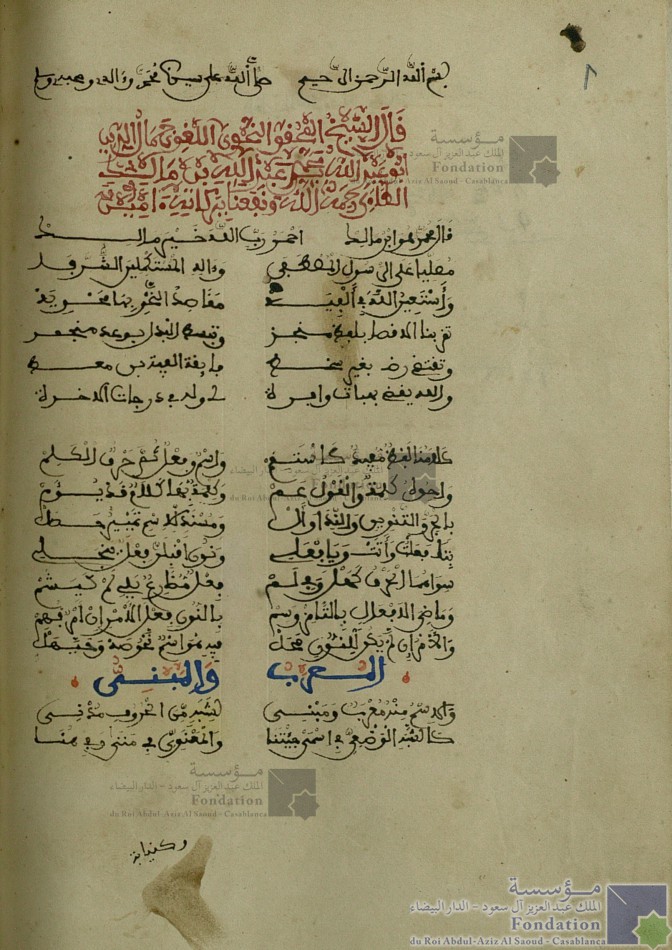 بسم الله الرحمن الرحيم صلى الله على سيدنا محمد وءاله وصحبه وسلم
قال الشيخ الفقيه النحوي اللغوي جمال الدين
ابو عبد الله محمد بن عبد الله بن مالك
الطائي رحمه الله ونفعنا ببركاته امين
قال محمد هو ابن مالك احمد ربي الله خير مالك
مصليا على الرسول المصطفى وءاله المستكملين الشرفا
وأستعين الله في ألفيه مقاصد النحو بها محويه
تقرب الاقصى بلفظ موجز وتبسط البذل بوعد منجز
وتقتضي رضى بغير سخط فايقة الفية ابن معط
والله يقضي بهبات وافرة لي وله في درجات الاخرة
كلامنا لفظ مفيد كاستقم واسم وفعل ثم حرف الكلم
واحده كلمة والقول عم وكلمة بها كلام قد يؤم
بالجر والتنوين والندا وأل ومسند للاسم تمييز حصل
بتا فعلت وأتت ويا افعلي ونون اقبلن فعل ينجلي
سواهما الحرف كهل وفي ولم فعل مضارع يلي لم كيشم
وماضي الافعال بالتا مز وسم بالنون فعل الامر ان امر فهم
والامر ان لم يك للنون محل فيه هو اسم نحو صه وحيهل
المعرب والمبني
والاسم منه معرب ومبني لشبه من الحروف مدني
كالشبه الوضعي في اسمي جئتنا والمعنوي في متى وفي هنا
وكنيابة
مؤسسة
الملك عبد العزيز آل سعود - الدار البيضاء
Fondation
du Roi Abdul-Aziz Al Saoud - Casablanca